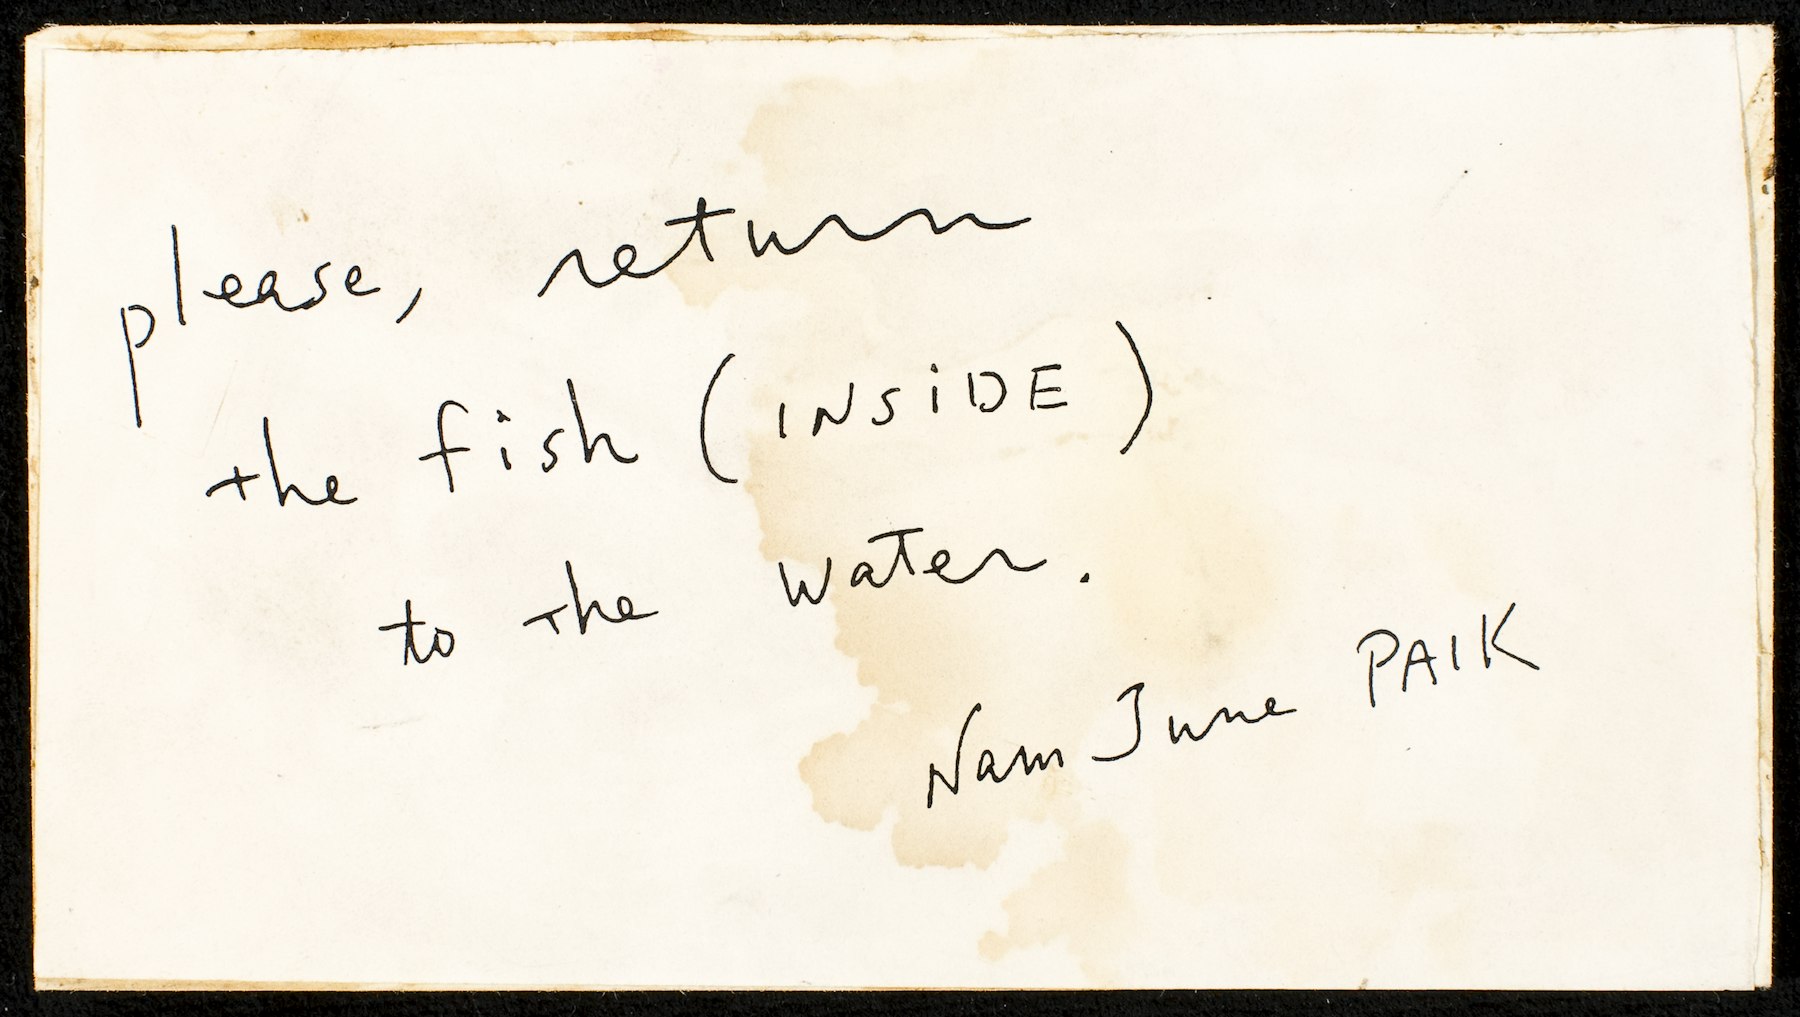 please, return
the fish (INSiDE)
to the water.
Nam June PAIK